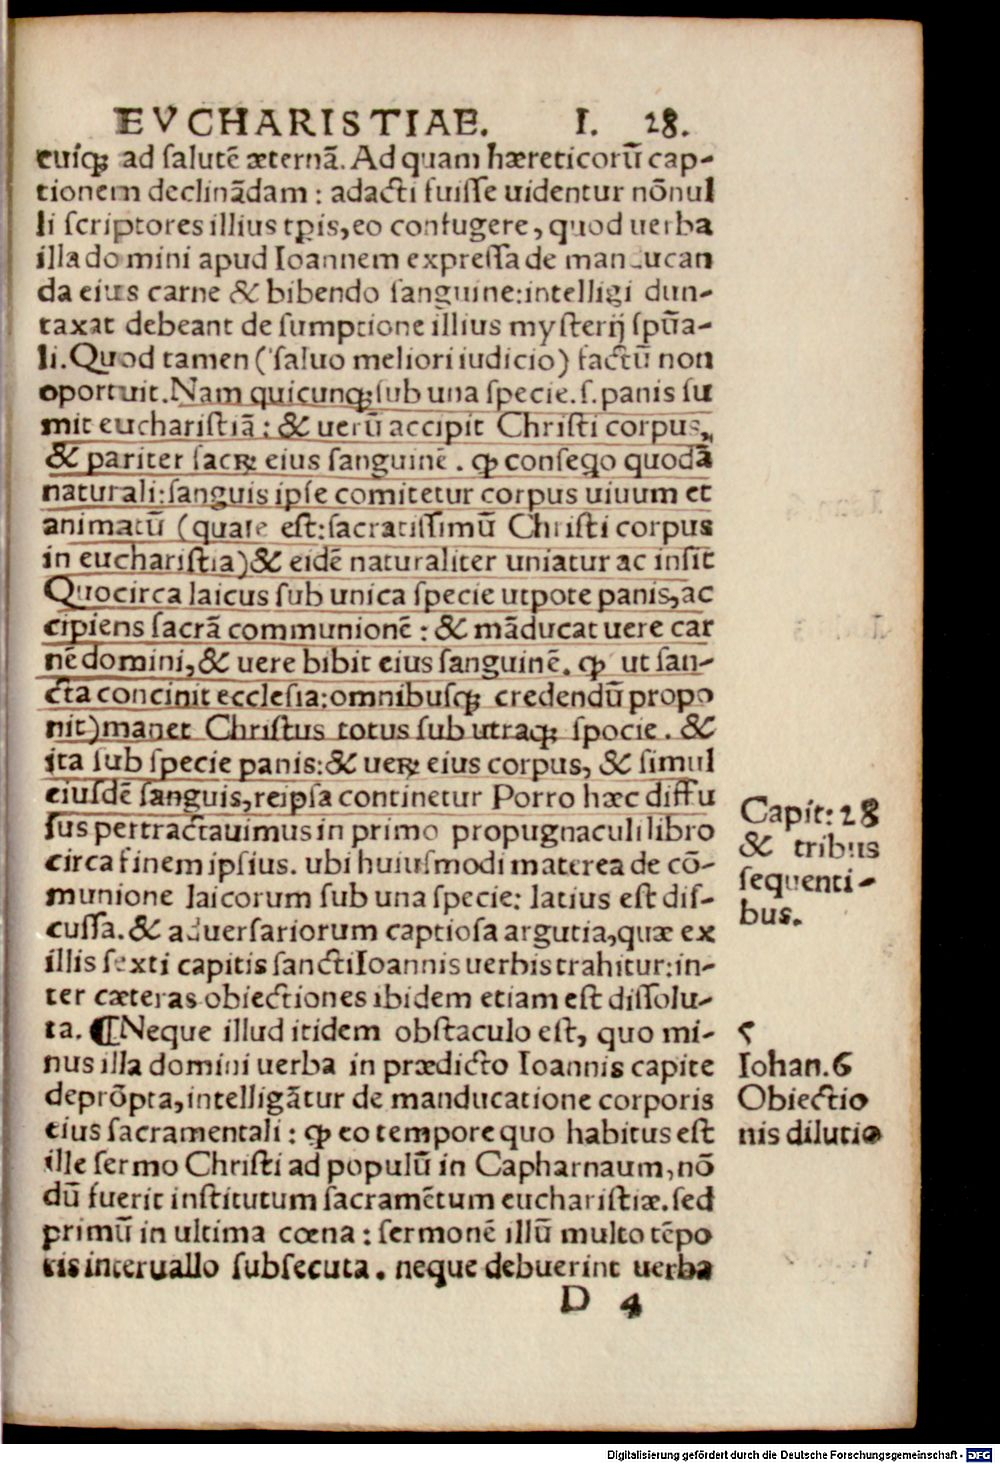 EVCHARISTIAE. I. 28.
cuiq; ad salutē æternā. Ad quam hæreticorū cap-
tionem declinādam : adacti fuisse uidentur nōnul
li scriptores illius tp̄is, eo confugere, quod uerba
illa domini apud Ioannem expressa de manducan
da eius carne & bibendo sanguine: intelligi dun-
taxat debeant de sumptione illius mysterij sp̄ua-
li. Quod tamen (saluo meliori iudicio) factū non
oportuit. Nam quicunq; sub una specie .s. panis su
mit eucharistiā : & uerū accipit Christi corpus,
& pariter sacrꝝ eius sanguinē . ꝙ conseq̄o quodā
naturali: sanguis ipse comitetur corpus uiuum et
animatū (quale est: sacratissimū Christi corpus
in eucharistia) & eidē naturaliter uniatur ac insit
Quocirca laicus sub unica specie utpote panis, ac
cipiens sacrā communionē : & māducat uere car
nē domini, & uere bibit eius sanguinē. ꝙ ut san-
cta concinit ecclesia: omnibusq; credendū propo
nit) manet Christus totus sub utraq; spocie . &
ita sub specie panis: & uerꝝ eius corpus, & simul
eiusdē sanguis, reipsa continetur Porro hæc diffu
sus pertractauimus in primo propugnaculi libro
circa finem ipsius. ubi huiusmodi materea de cō-
munione laicorum sub una specie: latius est dis-
cussa. & aduersariorum captiosa argutia, quæ ex
illis sexti capitis sancti Ioannis uerbis trahitur: in-
ter cæteras obiectiones ibidem etiam est dissolu-
ta. ¶ Neque illud itidem obstaculo est, quo mi-
nus illa domini uerba in prædicto Ioannis capite
deprōpta, intelligātur de manducatione corporis
eius sacramentali : ꝙ eo tempore quo habitus est
ille sermo Christi ad populū in Capharnaum, nō
dū fuerit institutum sacramētum eucharistiæ. sed
primū in ultima cœna : sermonē illū multo tēpo
ris interuallo subsecuta . neque debuerint uerba
D 4
Capit: 28
& tribus
sequenti-
bus.
5
Iohan. 6
Obiectio
nis dilutio
Digitalisierung gefördert durch die Deutsche Forschungsgemeinschaft - DFG